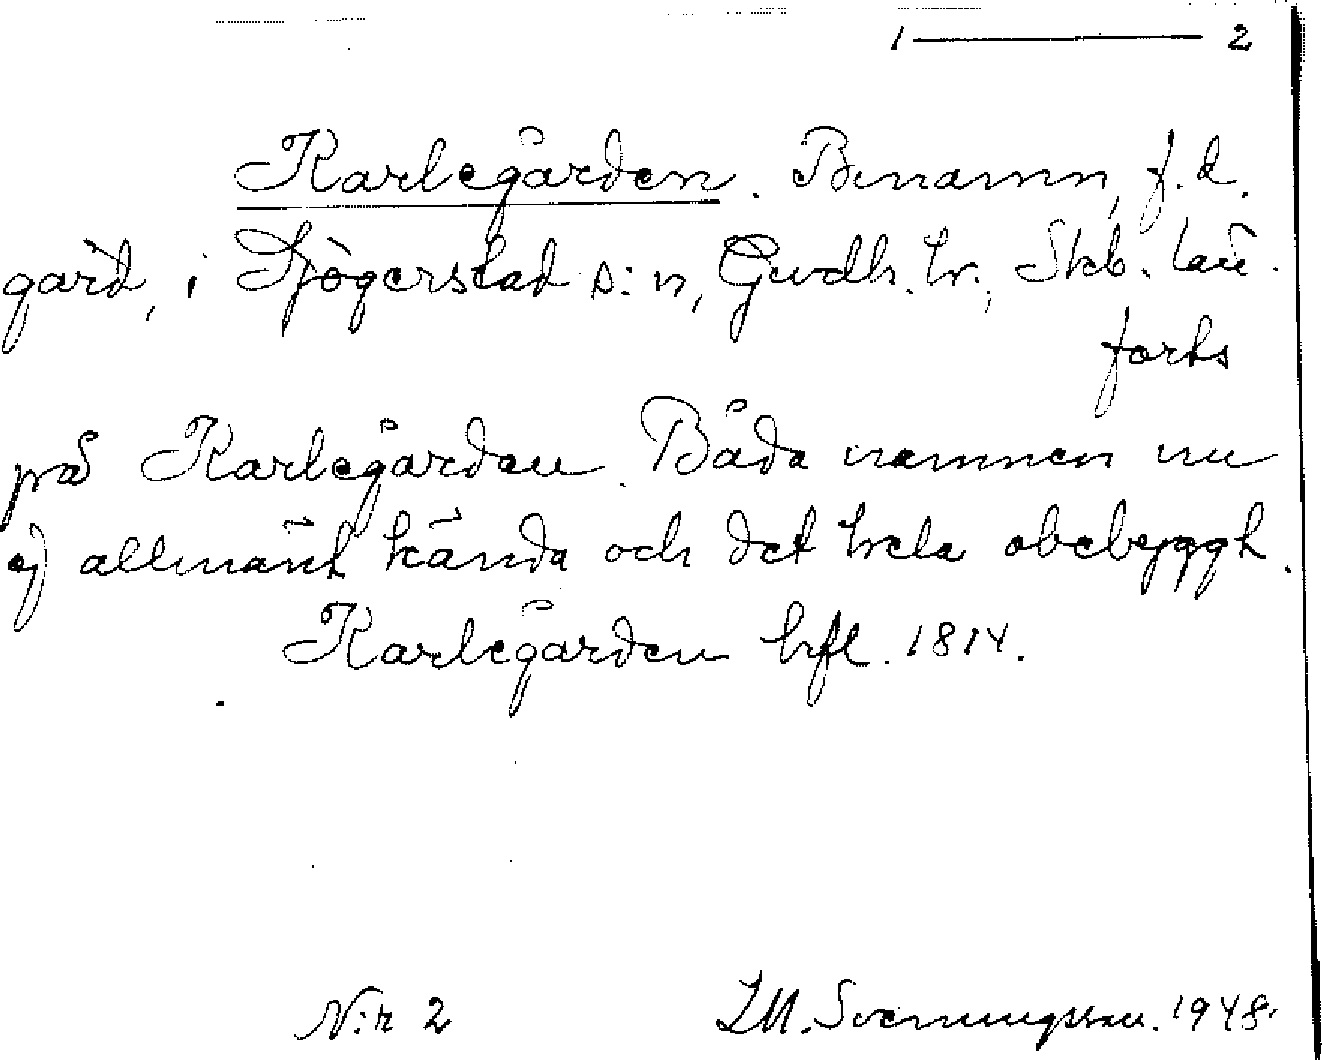 1 ——— 2
Karlegården. Binamn, f. d.
gård, i Sjögerstad s:n, Gudh. hr., Skb. län.
forts
på Karlegården. Båda namnen nu
ej allmänt kända och det hela obebyggt.
Karlegården hfl. 1814.
N:r 2 LM. Svenungsson. 1948.